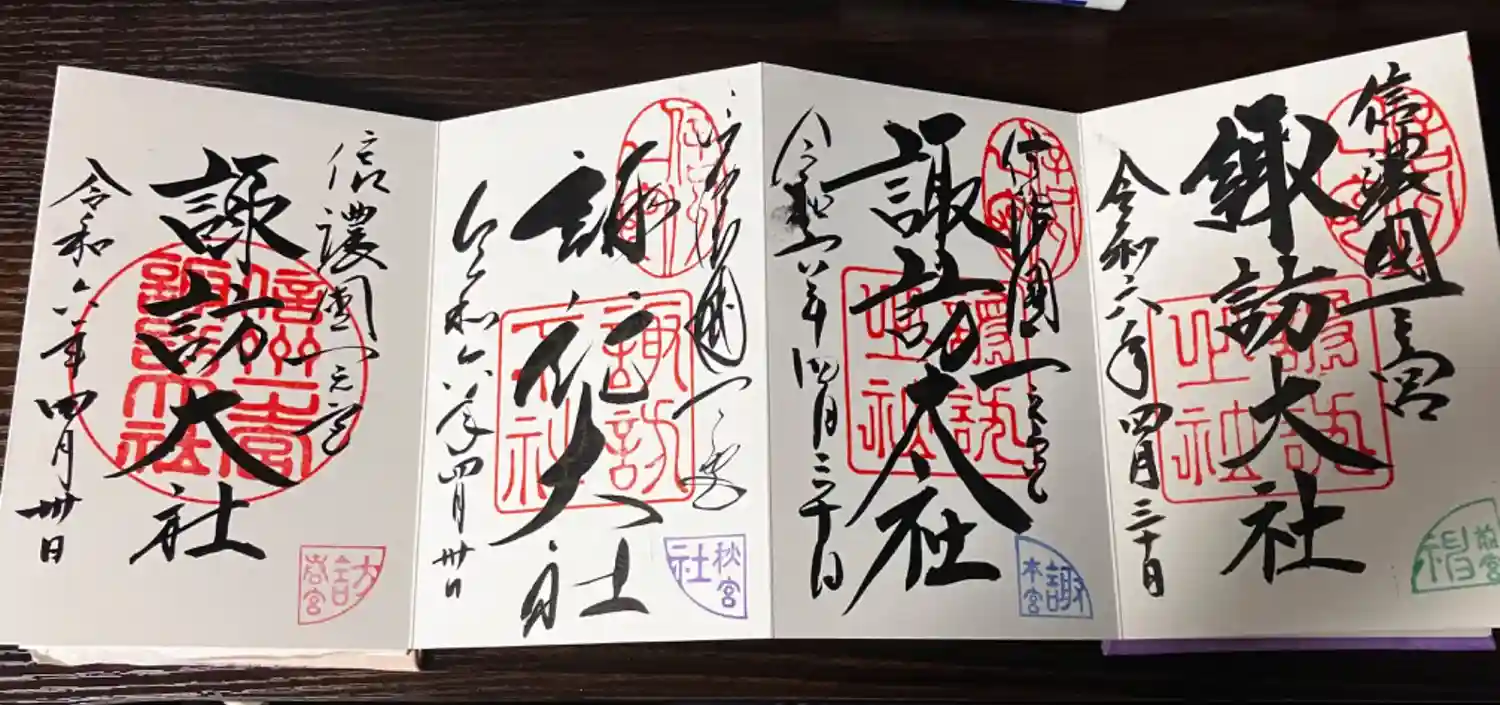 信濃國一之宮
諏訪大社
令和六年四月三十日
前宮
信濃國一之宮
諏訪大社
令和六年四月三十日
諏
本宮
信濃國一之宮
諏訪大社
令和六年四月卅日
秋宮
社
信濃國一之宮
諏訪大社
令和六年四月卅日
訪
春宮